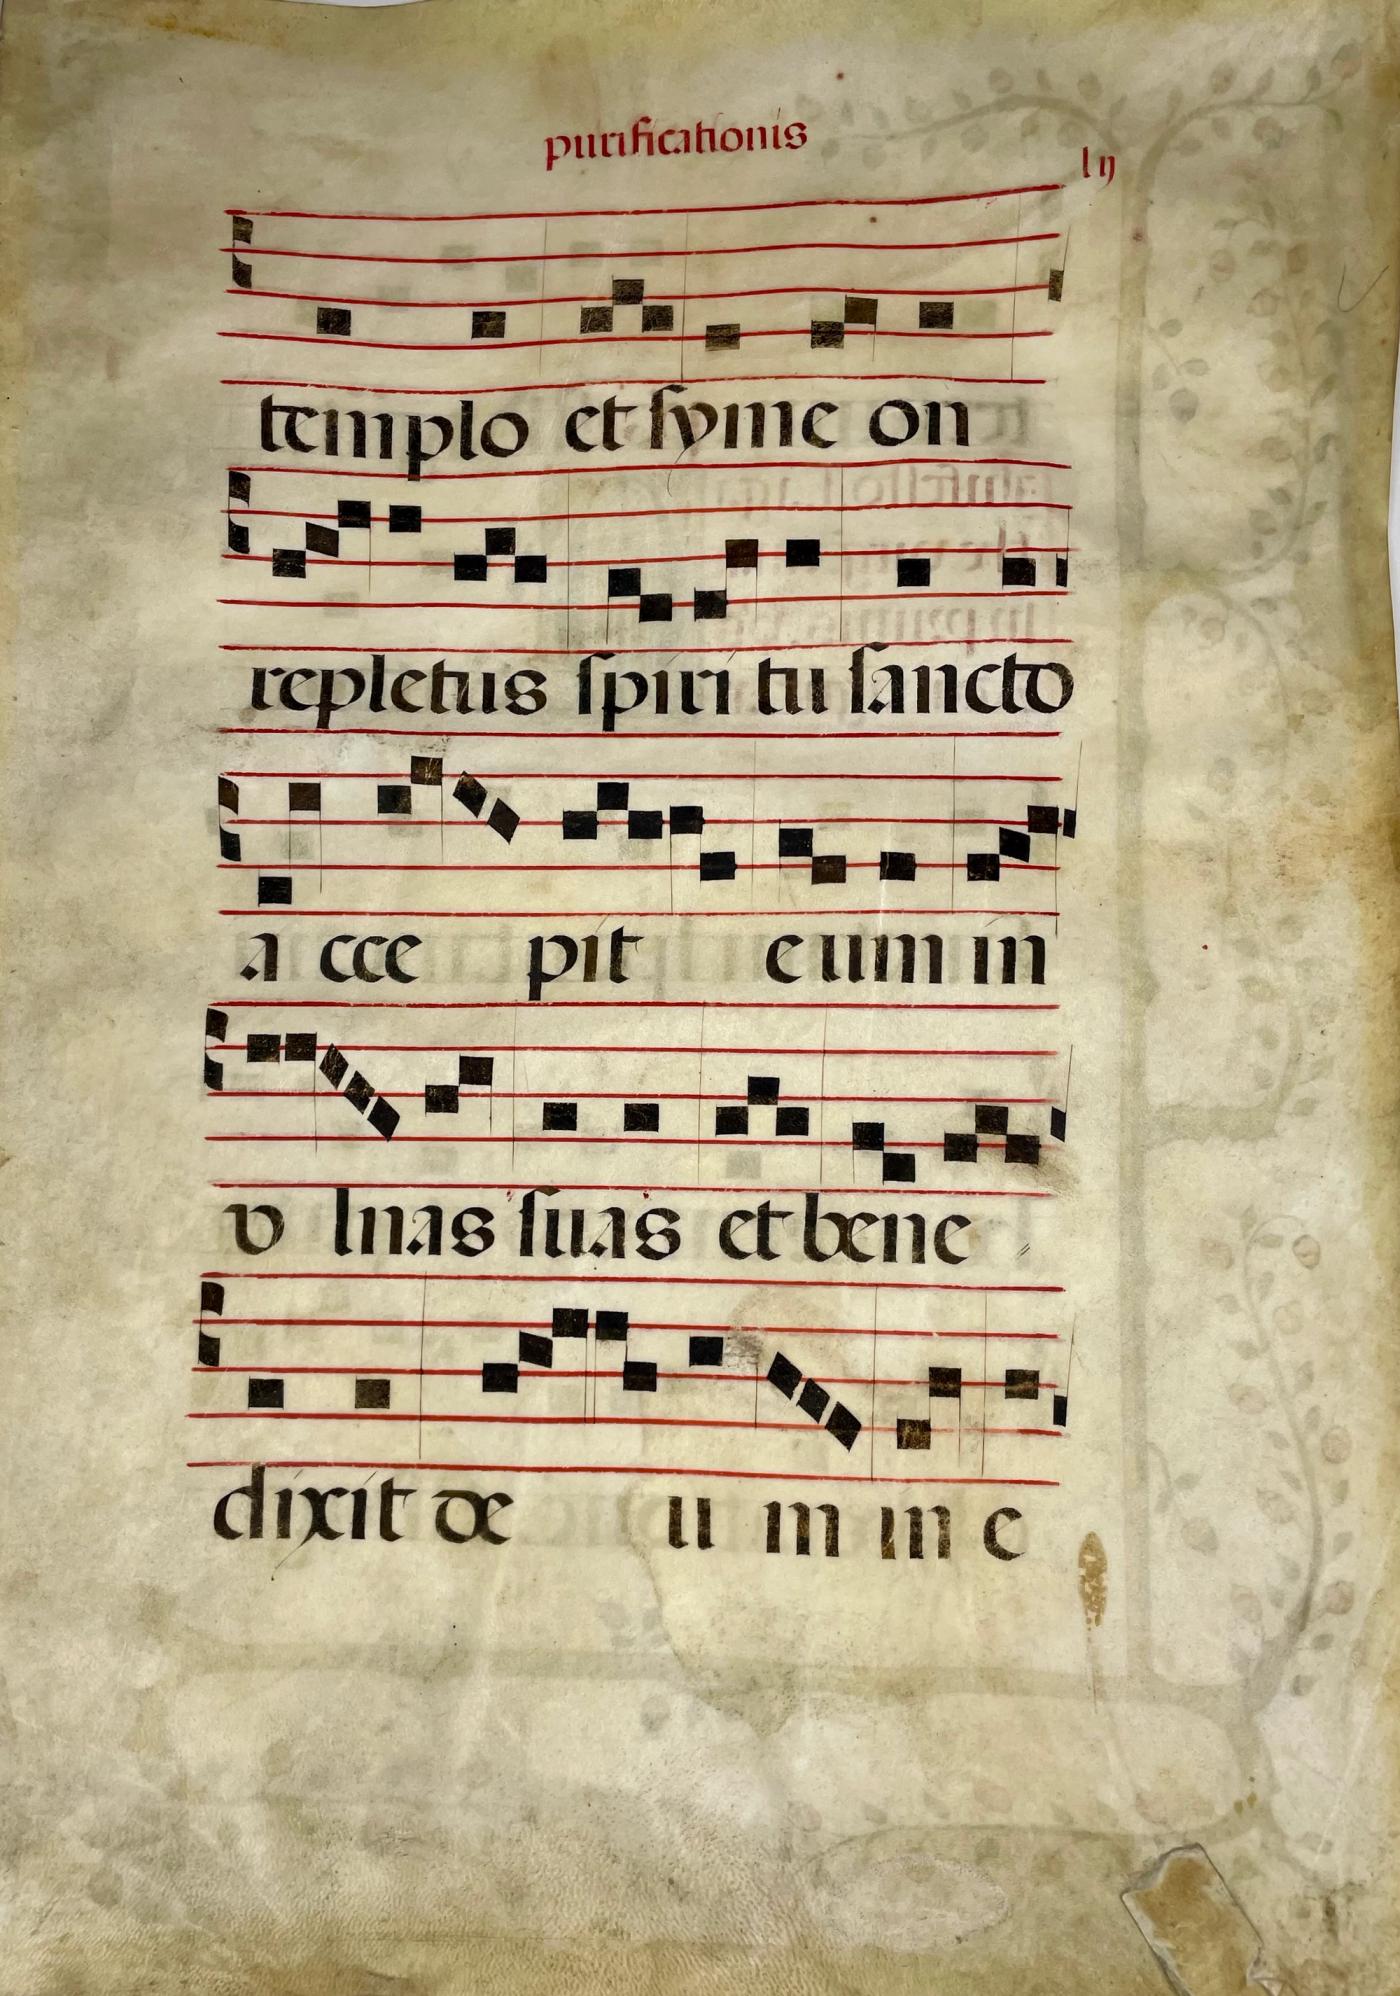 purificationis
lij
templo et ſyme on
repletus ſpiri tu ſancto
a cce pit e um in
v lnas ſuas et bene
dixit de u m in e